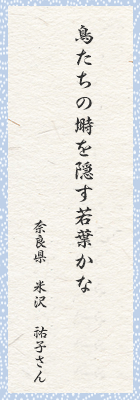 鳥たちの塒を隠す若葉かな
奈良県　米沢　祐子さん